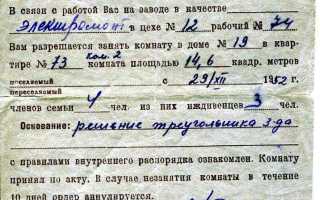 В связи с работой Вас на заводе в качестве
электромонт в цехе № 12 рабочий № 74
Вам разрешается занять комнату в доме № 19 в квар-
тире № 73 ком. 2 комната площадью 14,6 квадр. метров
поселяемый
переселяемый с 29/XII 1952 г.
членов семьи 4 чел. из них иждивенцев 3 чел.
Основание: решение треугольника з-да
с правилами внутреннего распорядка ознакомлен. Комнату
принял по акту. В случае незанятия комнаты в течение
10 дней ордер аннулируется.